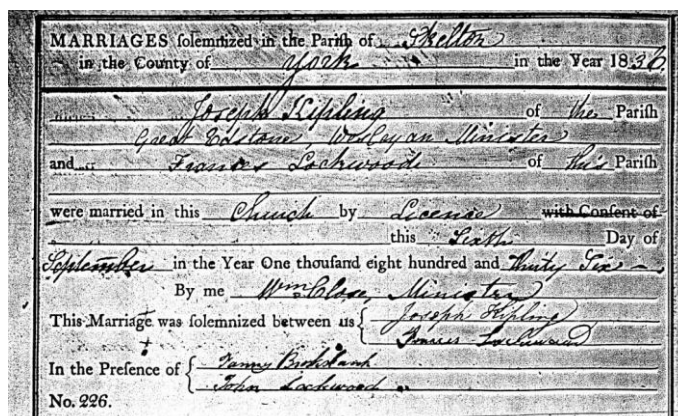 MARRIAGES ſolemnized in the Pariſh of Skelton
in the County of York in the Year 1836.
Joseph Kipling of the Pariſh
Great Edstone, Wesleyan Minister
and Frances Lockwood of this Pariſh
were married in this Church by License with Conſent of
this Sixth Day of
September in the Year One thouſand eight hundred and thirty Six
By me Wm. Close, Minister
This Marriage was ſolemnized between us { Joseph Kipling
Frances Lockwood
In the Preſence of { Fanny
John Lockwood
No. 226.